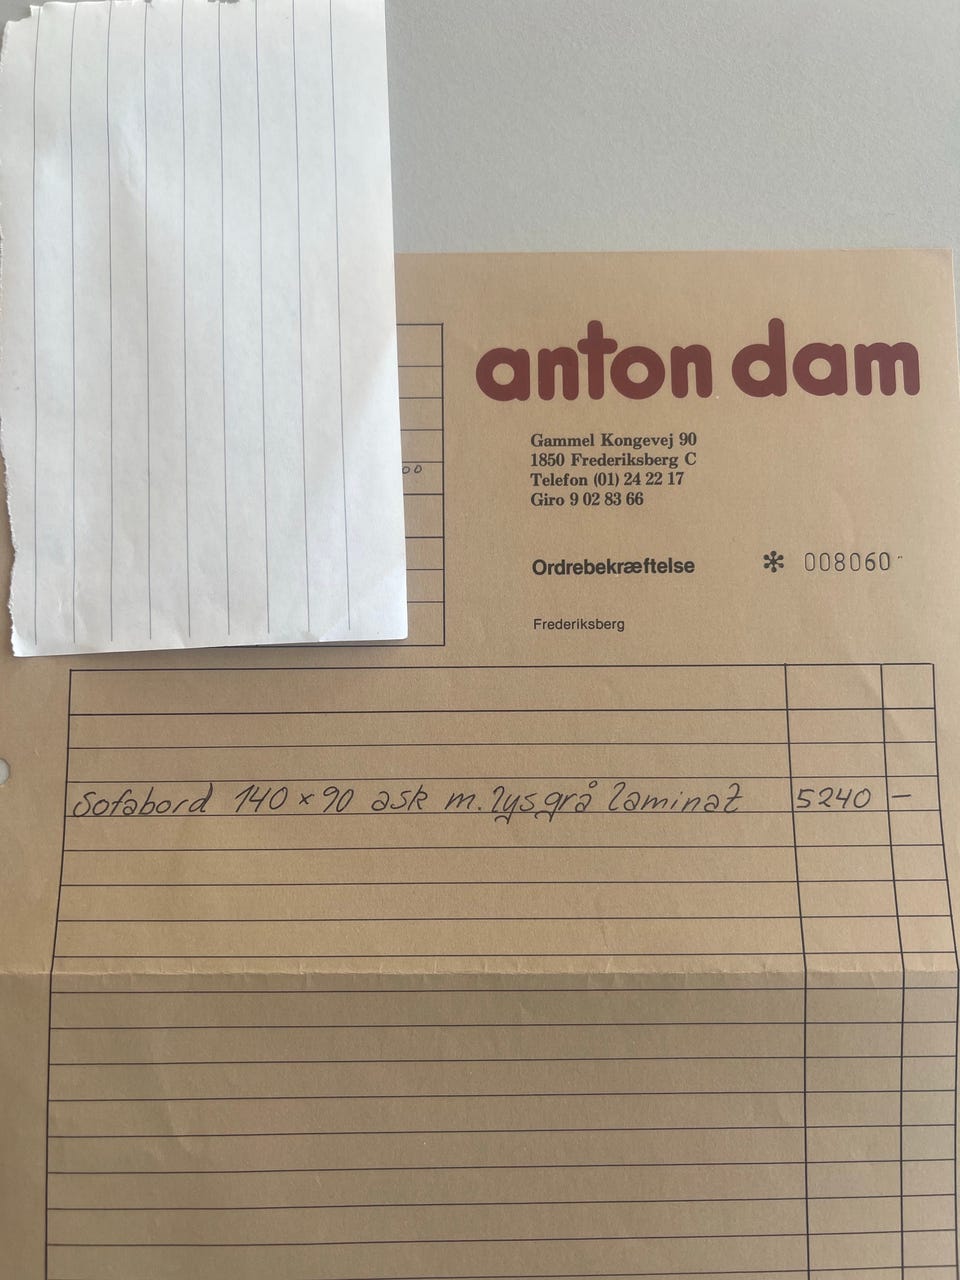 anton dam
Gammel Kongevej 90
1850 Frederiksberg C
Telefon (01) 24 22 17
Giro 9 02 83 66
Ordrebekræftelse * 008060
Frederiksberg
Sofabord 140 x 90 ask m. lysgrå laminat 5240 —